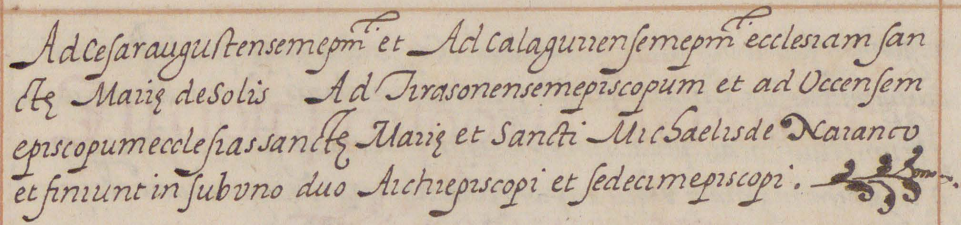 Ad cesaraugustensem epm̃ et Ad calagurrensem epm̃ ecclesiam san
ctę Marię de Solis Ad Tirasonensem episcopum et ad Occensem
episcopum ecclesias sanctę Marię et Sancti Michaelis de Naranco
et finiunt in sub vno duo Archiepiscopi et sedecim episcopi.